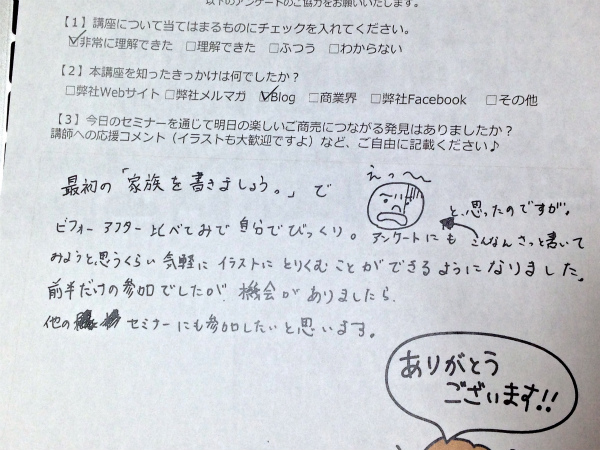 以下のアンケートのご協力をお願いいたします。
【1】講座について当てはまるものにチェックを入れてください。
☑非常に理解できた □理解できた □ふつう □わからない
【2】本講座を知ったきっかけは何でしたか？
□弊社Webサイト □弊社メルマガ ☑Blog □商業界 □弊社Facebook □その他
【3】今日のセミナーを通じて明日の楽しいご商売につながる発見はありましたか？
講師への応援コメント（イラストも大歓迎ですよ）など、ご自由に記載ください♪
えっ〜
最初の「家族を書きましょう。」で
と、思ったのですが。
ビフォーアフター比べてみて自分でびっくり。アンケートにも こんなん さっと書いて
みようと思うくらい気軽にイラストにとりくむことができるようになりました。
前半だけの参加でしたが、機会がありましたら、
他の セミナーにも参加したいと思います。
ありがとう
ございます!!